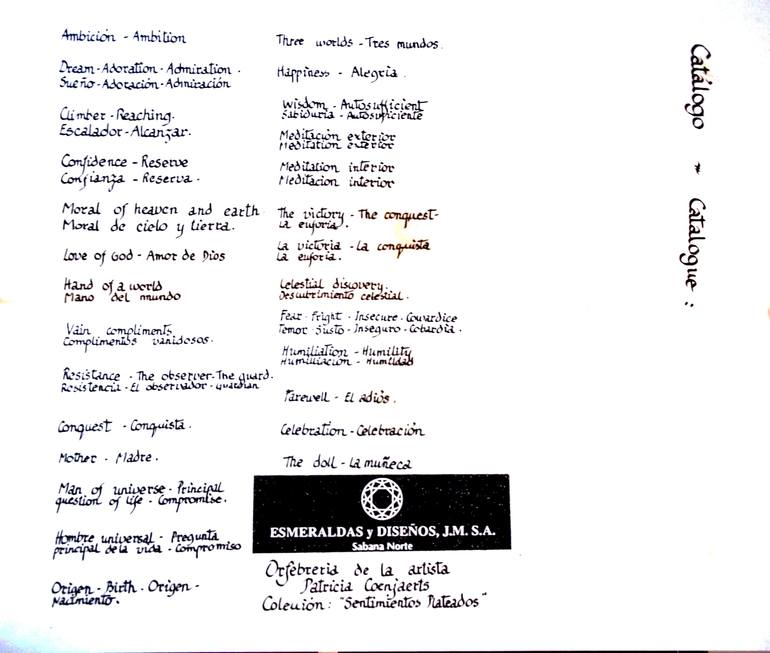 Catálogo ~ Catalogue:
Ambición - Ambition
Dream - Adoration - Admiration.
Sueño - Adoración - Admiración
Climber - Reaching.
Escalador - Alcanzar.
Confidence - Reserve
Confianza - Reserva.
Moral of heaven and earth
Moral de cielo y tierra.
Love of God - Amor de Dios
Hand of a world
Mano del mundo
Vain compliments
Complimentos vanidosos.
Resistance - The observer - The guard.
Resistencia - El observador - guardian
Conquest - Conquista.
Mother - Madre.
Man of universe - Principal
question of life - Compromise.
Hombre universal - Pregunta
principal de la vida - Compromiso
Origen - Birth - Origen -
Nacimiento.
Three worlds - Tres mundos.
Happiness - Alegria.
Wisdom - Autosufficient
Sabiduria - Autosuficiente
Meditación exterior
Meditation exterior
Meditation interior
Meditacion interior
The victory - The conquest -
La euforia.
La victoria - La conquista
La euforia.
Celestial discovery.
Descubrimiento celestial.
Fear - Fright - Insecure - Cowardice
Temor - Susto - Inseguro - Cobardia.
Humiliation - Humility
Humilliación - Humildad
Farewell - El adiós.
Celebration - Celebración
The doll - La muñeca
ESMERALDAS y DISEÑOS, J.M. S.A.
Sabana Norte
Orfebreria de la artista
Patricia Coenjaerts
Colección: "Sentimientos Plateados"